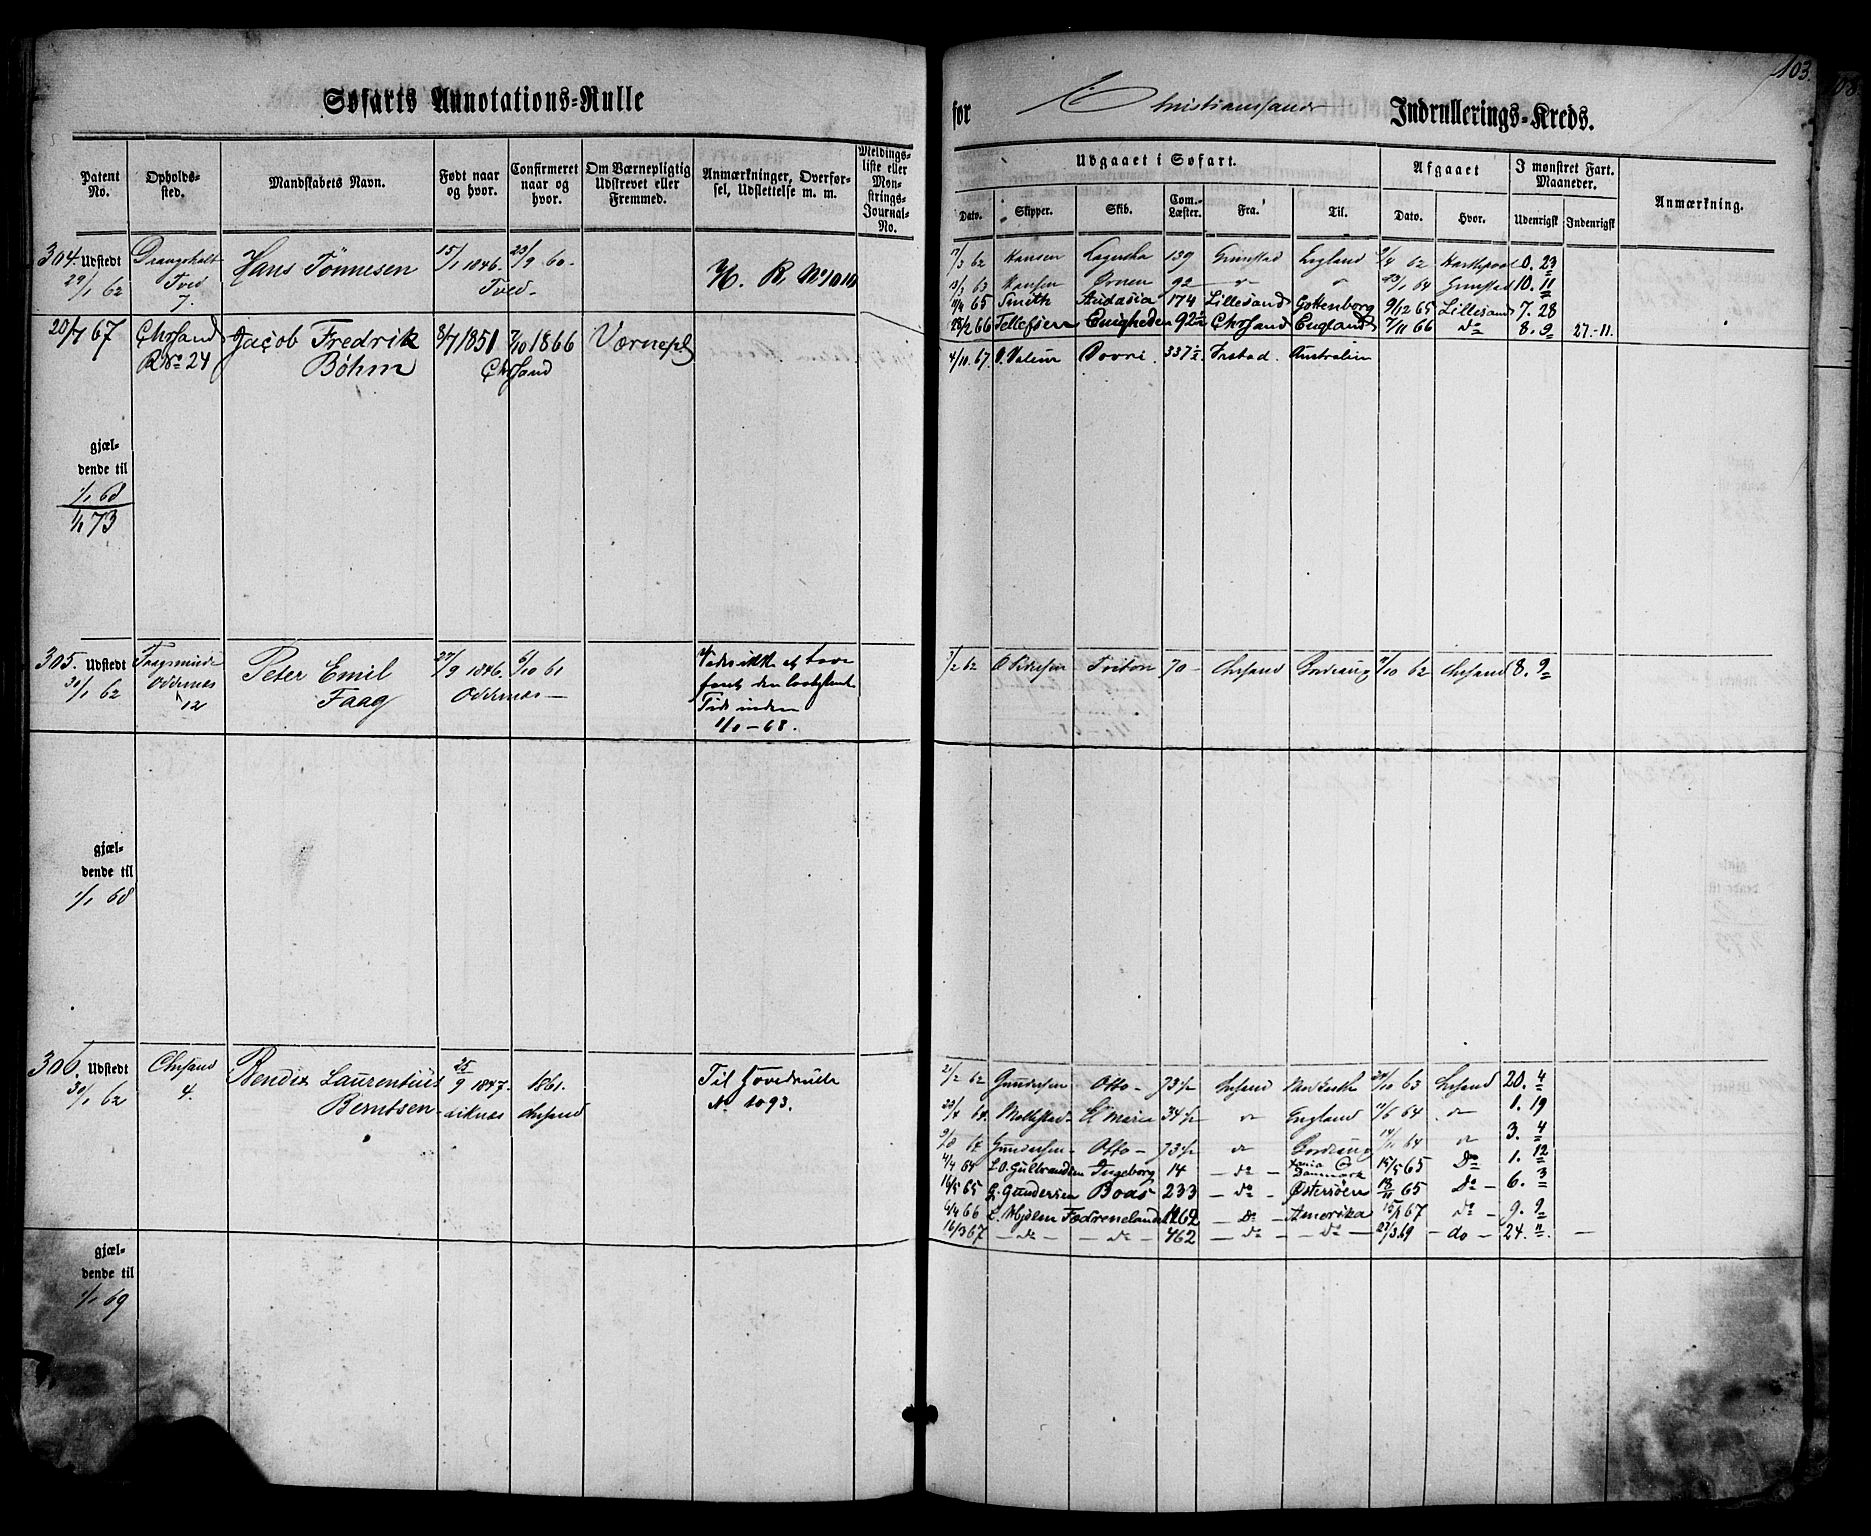 103.
Søfarts Annotations-Rulle
for Christianssands Indrullerings-Kreds.
Patent No. Opholdssted. Mandskabets Navn. Født naar og hvor. Confirmeret naar og hvor. Om Værnepligtig Udskrevet eller Fremmed. Anmærkninger, Overførsel, Udslettelse m. m. Meldingsliste eller Mønstrings-Journal-No.
Udgaaet i Søfart. Afgaaet I mønstret Fart. Maaneder. Anmærkning.
Dato. Skipper. Skib. Com. Læster. Fra. Til. Dato. Hvor. Udenrigsk Indenrigsk
304 Udstedt 29/1 62
Drangsholt Tved 7.
Hans Tönnesen
15/1 1846. Tved-
23/9 60-
H. R. No 1010
17/3 62 Hansen 139 Grimstad England 9/4 62 Hartlepool 0. 23
13/3 63 Hansen Örnen 92 - " - " 23/1 64 Grimstad 10. 11
11/4 65 Smith 174 Lillesand Gottenborg 9/12 65 Lillesand 7. 28
28/2 66 Tellefsen Enigheden 92½ Chrsand England 7/11 66 do 8. 9 27.-11.
20/7 67
Chrsand R No 24
Jacob Fredrik
Bøhm
8/7 1851 Chrsand
7/10 1866
Værnepl
4/10. 67. Dovre. 337½ Australien
gjældende til
1/1 68
1/1 73
305. Udstedt 31/1 62
Faagsminde Oddernes 12
Peter Emil
Faag
27/9 1846. Oddernes-
6/10 61
Tid inden
1/10-68.
7/2 62 Triton 70 - Chrsand Bordeaux 9/10 62 Chrsand 8. 9
gjældende til
1/1 68
306. Udstedt 30/1 62
Chrsand 4.
Bendix Laurentius
Berntsen-
25/9 1847.
1861. Chrsand
Til Hovedrulle
No 1093.
21/2 62 Gundersen Otto- 73½ Chrsand 24/10 63 Chrsand 20. 4
23/4 64. Maria 34½ " England 11/6 64 " 1. 19
9/8 64 Gundersen- Otto- 73½ " Bordeaux 14/11 64 " 3. 4
4/4 65 L. O. Gulbrandsen Ingeborg 14 - do - Danmark 15/5 65 Do 1. 12
16/5 65 G. Gundersen Boas 233 - do - Østersøen 18/11 65 Do - 6. 3
6/4 66 L. Hjelm Fædrenelandet 462 - Do - Amerika 15/1 67 do - 9. 9
16/3 67 - do - - do - 462 - do - - do - 27/3 69 - do - 24. 11. -
gjældende til
1/1 69